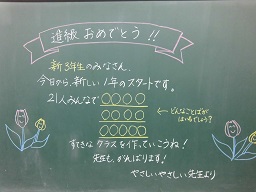 進級 おめでとう!!
新3年生のみなさん。
今日から、新しい1年のスタートです。
21人みんなで○○○○
○○○○
○○○○○
←どんなことばが
はいるでしょう?
すてきなクラスを作っていこうね!
先生も、がんばります!
やさしいやさしい先生より